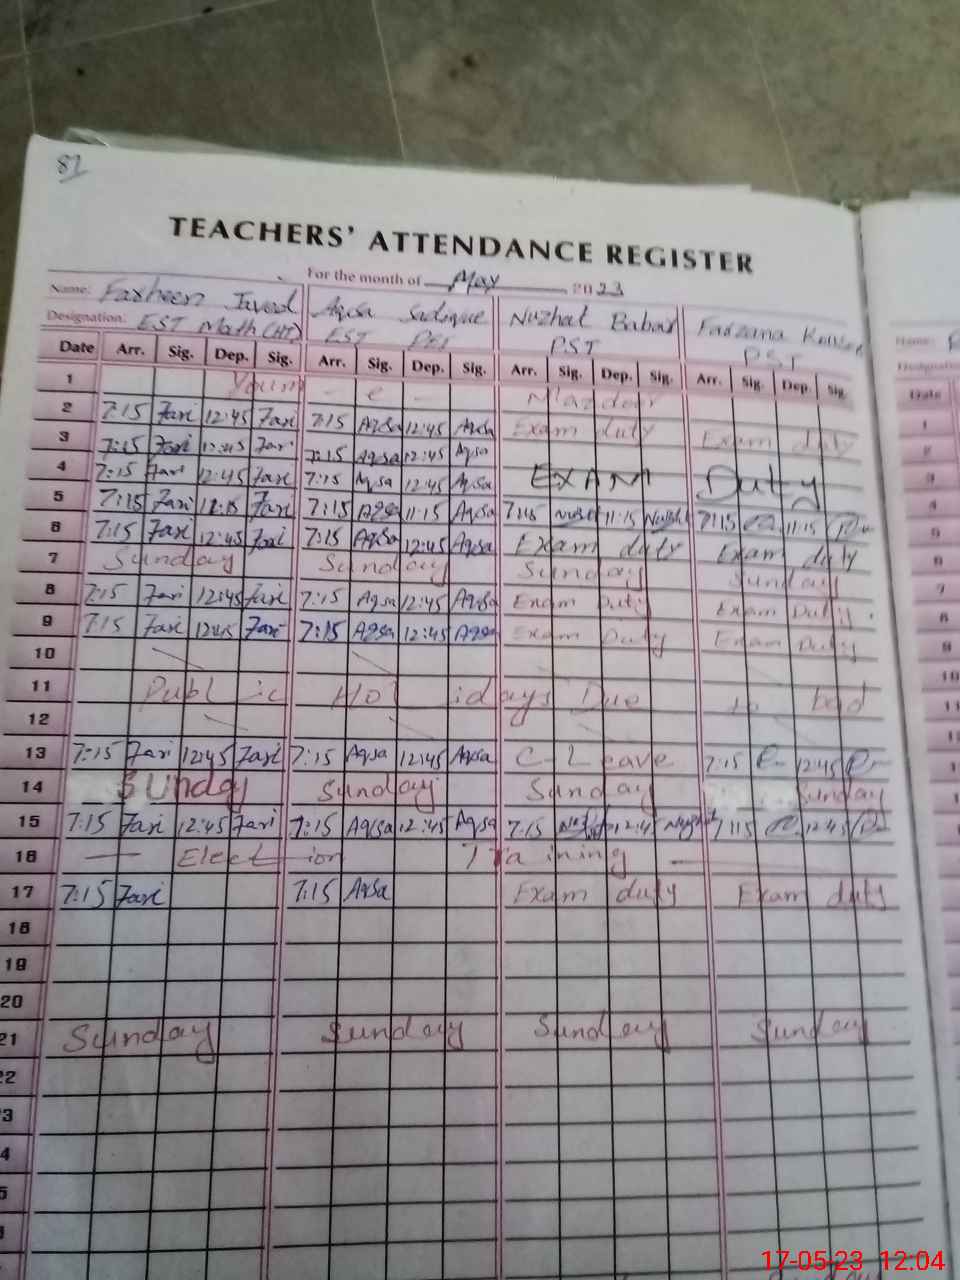 82
TEACHERS' ATTENDANCE REGISTER
For the month of May 2023
Name: Farheen Javed Aqsa Sadique Nuzhat Babar Farzana
Designation: EST Math (HT) EST PET PST PST
Date Arr. Sig. Dep. Sig. Arr. Sig. Dep. Sig. Arr. Sig. Dep. Sig. Arr. Sig. Dep. Sig.
1 Youm - e - Mazdoor
2 7:15 Fari 12:45 Fari 7:15 Aqsa 12:45 Aqsa Exam duty Exam duty
3 7:15 Fari 12:45 Fari 7:15 Aqsa 12:45 Aqsa
4 7:15 Fari 12:45 Fari 7:15 Aqsa 12:45 Aqsa EXAM Duty
5 7:15 Fari Fari 7:15 Aqsa 11:15 Aqsa 7:15 11:15 7:15 11:15
6 7:15 Fari 12:45 Fari 7:15 Aqsa 12:45 Aqsa Exam duty Exam duty
7 Sunday Sunday Sunday Sunday
8 7:15 Fari 12:45 Fari 7:15 Aqsa 12:45 Aqsa Exam Duty Exam Duty.
9 7:15 Fari 12:45 Fari 7:15 Aqsa 12:45 Aqsa Exam Duty Exam Duty
10
11 Public Holidays Due to bad
12
13 7:15 Fari 12:45 Fari 7:15 Aqsa 12:45 Aqsa C-Leave 7:15 12:45
14 Sunday Sunday Sunday Sunday
15 7:15 Fari 12:45 Fari 7:15 Aqsa 12:45 Aqsa 7:15 12:45 7:15 12:45
16 — Election Training —
17 7:15 Fari 7:15 Aqsa Exam duty Exam duty
18
19
20
21 Sunday Sunday Sunday Sunday
22
3
4
5
17-05-23 12:04